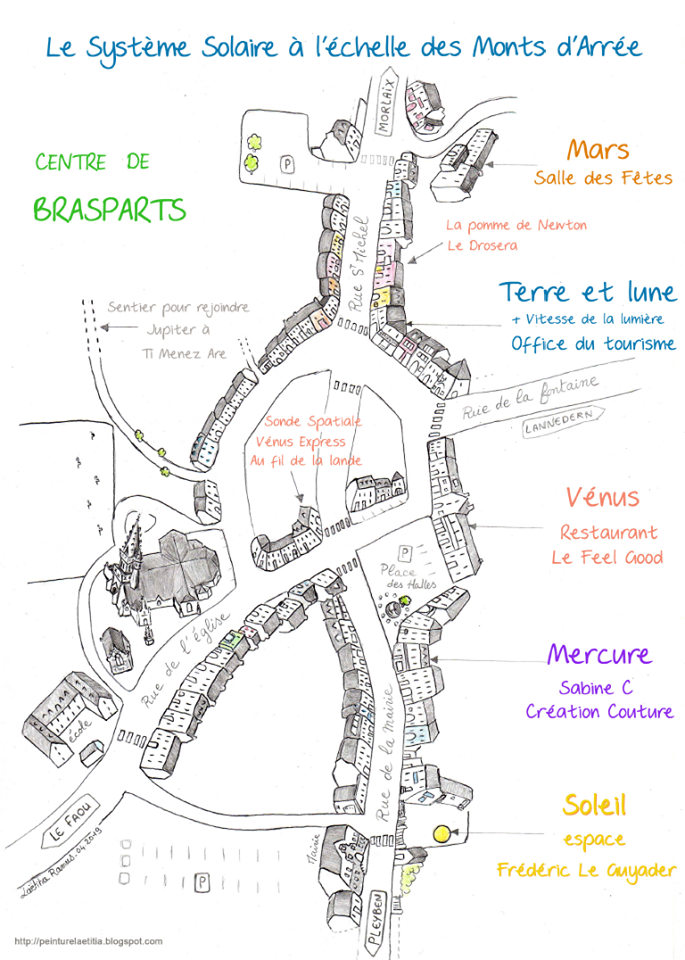 Le Système Solaire à l'échelle des Monts d'Arrée
MORLAIX
CENTRE DE
BRASPARTS
P
Mars
Salle des Fêtes
Rue St Michel
La pomme de Newton
Le Drosera
Terre et lune
+ Vitesse de la lumière
Office du tourisme
Sentier pour rejoindre
Jupiter à
Ti Menez Are
Rue de la fontaine
LANNEDERN
Sonde Spatiale
Vénus Express
Au fil de la lande
Vénus
Restaurant
Le Feel Good
P
Place
des Halles
Rue de l'Église
Mercure
Sabine C
Création Couture
école
Rue de la Mairie
LE FAOU
Soleil
espace
Frédéric Le Guyader
Mairie
P
Laëtitia Ramus. 04 2019
PLEYBEN
http://peinturelaetitia.blogspot.com